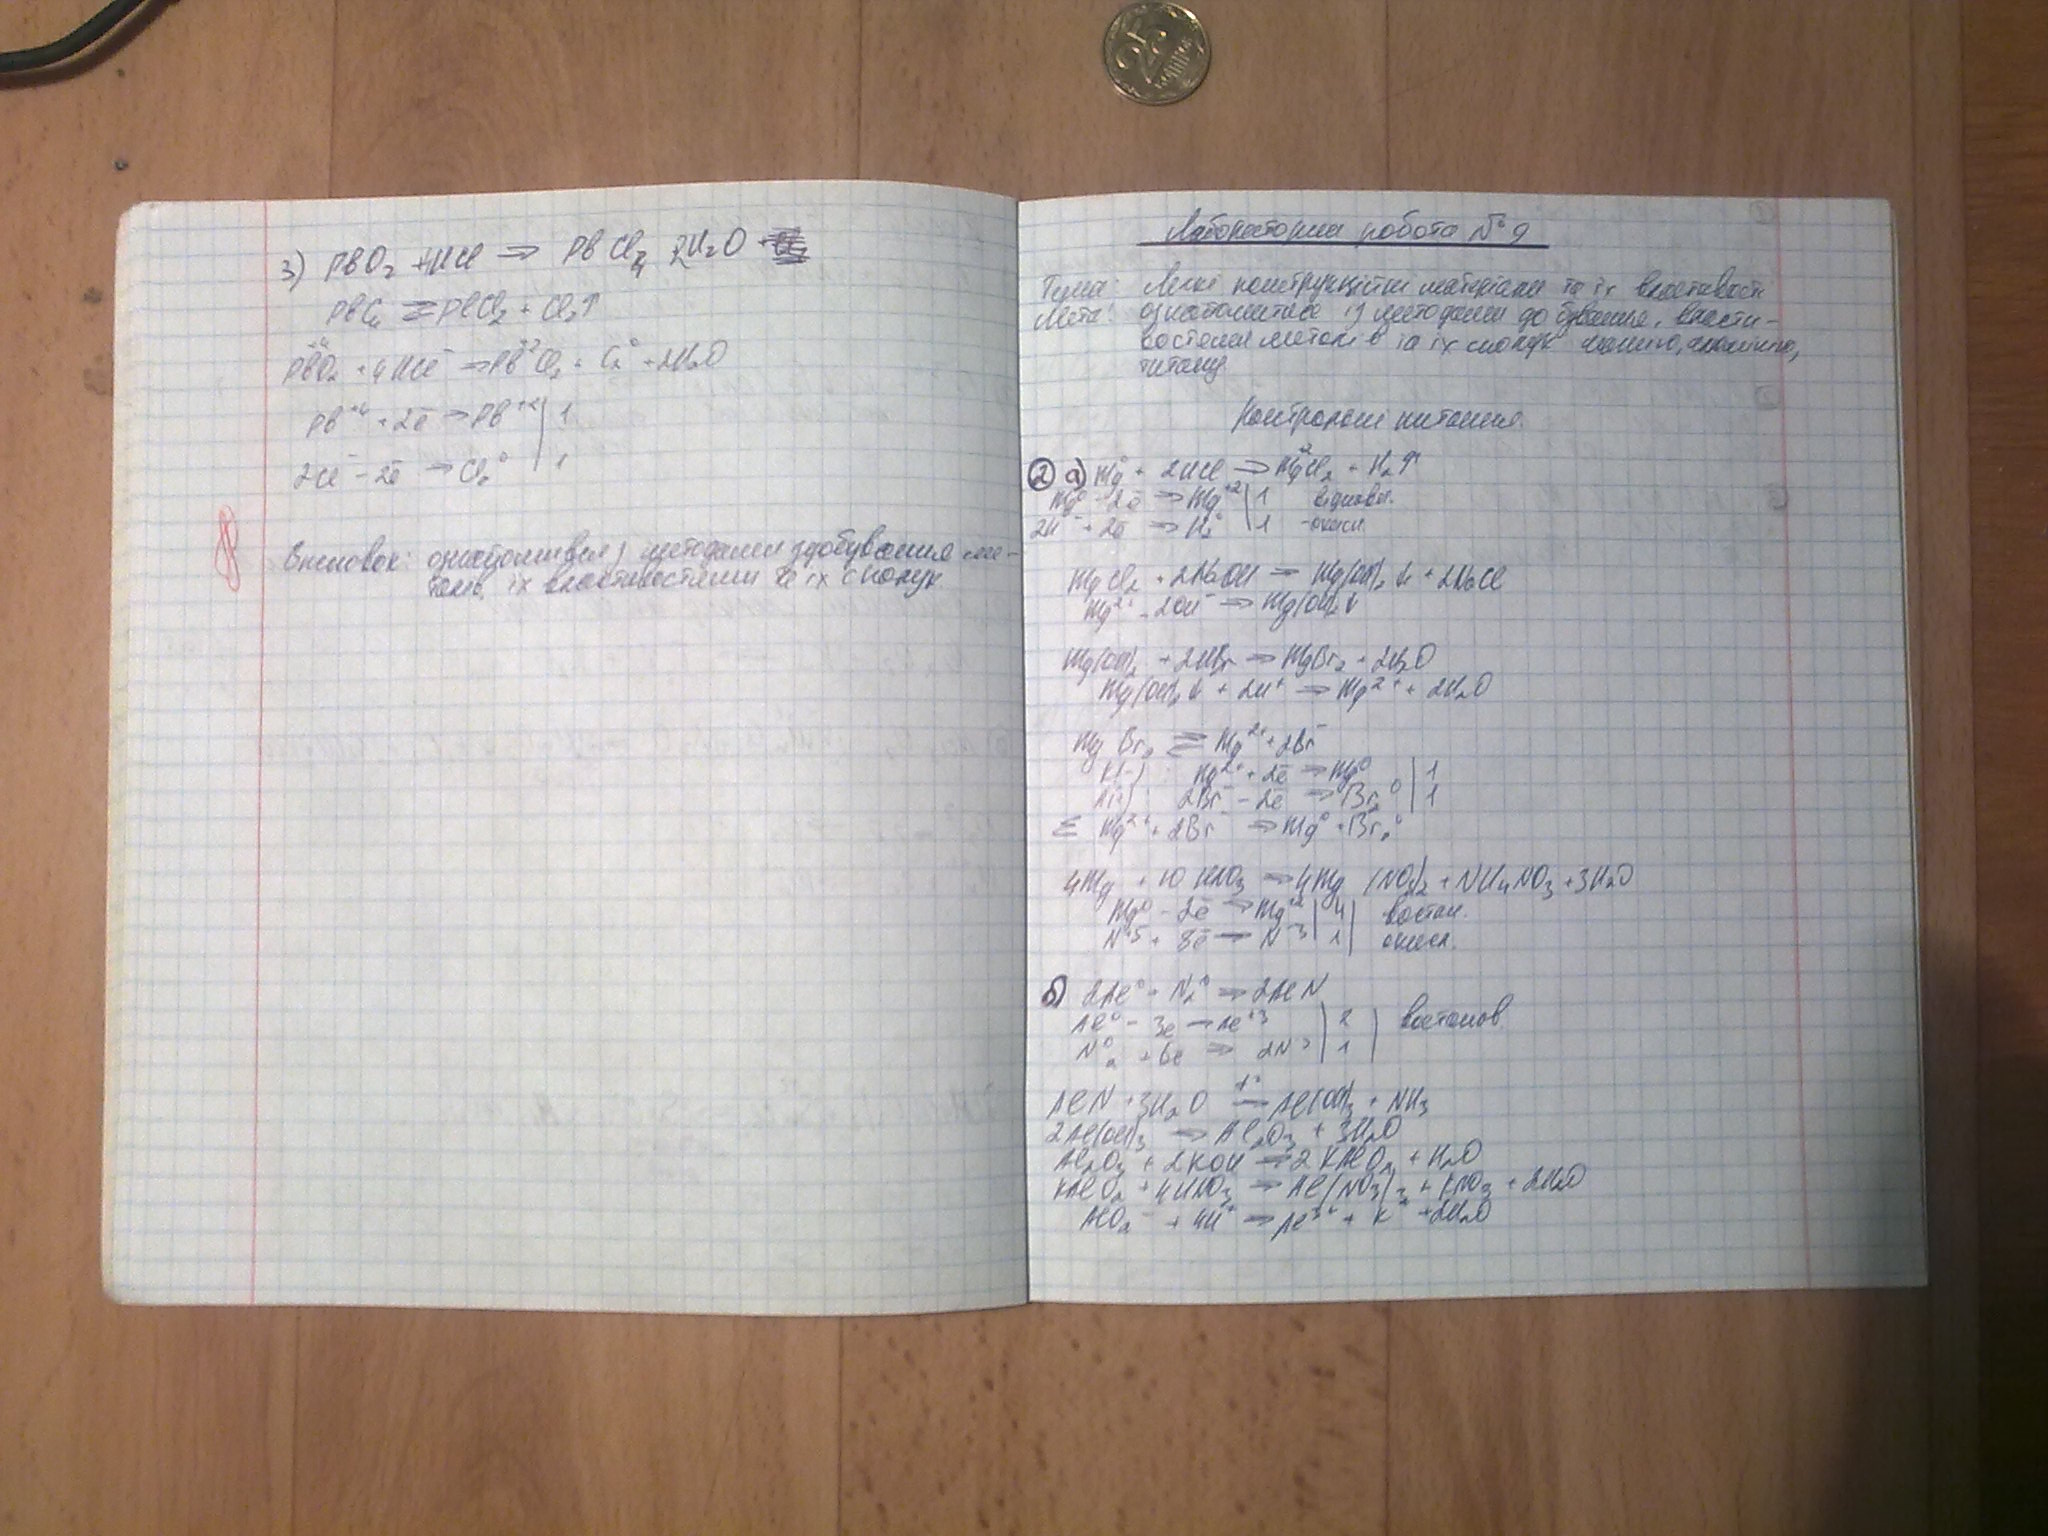 3) PbO₂ + HCl → PbCl₄ 2H₂O +
PbCl₄ ⇄ PbCl₂ + Cl₂↑
Pb⁺⁴O₂ + 4HCl⁻ → Pb⁺²Cl₂ + Cl₂⁰ + 2H₂O
Pb⁺⁴ + 2ē → Pb⁺² | 1
2Cl⁻ - 2ē → Cl₂⁰ | 1
Висновок: ознайомився з методами здобування ме-
талів, їх властивостями та їх сполук.
25
Лабораторна робота № 9
Тема: Легкі конструкційні матеріали та їх властивості
Мета: ознайомитися із методами добування, власти-
востями металів та їх сполук магнію, алюмінію,
титану.
Контрольні питання.
2 а) Mg⁰ + 2HCl → Mg⁺²Cl₂ + H₂↑
Mg⁰ - 2ē → Mg⁺² | 1 віднов.
2H⁺ + 2ē → H₂⁰ | 1 - окисн.
MgCl₂ + 2NaOH → Mg(OH)₂↓ + 2NaCl
Mg²⁺ - 2OH⁻ → Mg(OH)₂↓
Mg(OH)₂ + 2HBr → MgBr₂ + 2H₂O
Mg(OH)₂↓ + 2H⁺ → Mg²⁺ + 2H₂O
MgBr₂ ⇄ Mg²⁺ + 2Br⁻
K(-) : Mg²⁺ + 2ē → Mg⁰ | 1
A(+) : 2Br⁻ - 2ē → Br₂⁰ | 1
Σ Mg²⁺ + 2Br⁻ → Mg⁰ + Br₂⁰
4Mg + 10HNO₃ → 4Mg(NO₃)₂ + NH₄NO₃ + 3H₂O
Mg⁰ - 2ē → Mg⁺² | 4 | востан.
N⁺⁵ + 8ē → N⁻³ | 1 | окисл.
б) 2Al⁰ + N₂⁰ → 2AlN
Al⁰ - 3e → Al⁺³ | 2 | востанов
N₂⁰ + 6e → 2N⁻³ | 1 |
AlN + 3H₂O →t° Al(OH)₃ + NH₃
2Al(OH)₃ → Al₂O₃ + 3H₂O
Al₂O₃ + 2KOH → 2KAlO₂ + H₂O
KAlO₂ + 4HNO₃ → Al(NO₃)₃ + KNO₃ + 2H₂O
AlO₂⁻ + 4H⁺ → Al³⁺ + K⁺ + 2H₂O